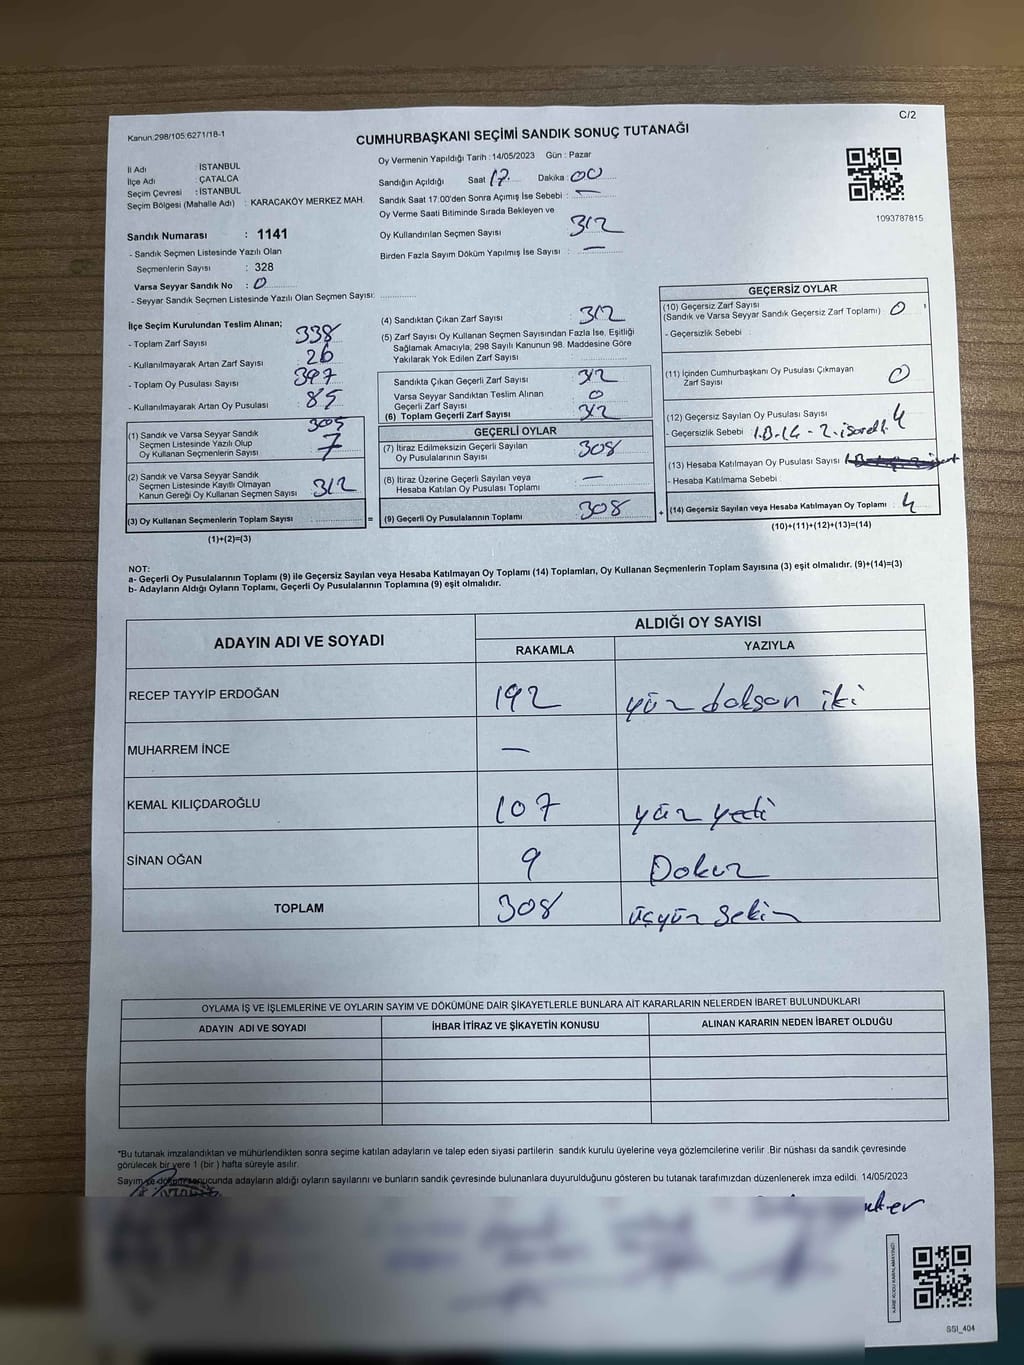 C/2
Kanun:298/105;6271/18-1
CUMHURBAŞKANI SEÇİMİ SANDIK SONUÇ TUTANAĞI
İl Adı : İSTANBUL
İlçe Adı : ÇATALCA
Seçim Çevresi : İSTANBUL
Seçim Bölgesi (Mahalle Adı) : KARACAKÖY MERKEZ MAH.
Sandık Numarası : 1141
- Sandık Seçmen Listesinde Yazılı Olan
Seçmenlerin Sayısı : 328
Varsa Seyyar Sandık No : 0
- Seyyar Sandık Seçmen Listesinde Yazılı Olan Seçmen Sayısı:
Oy Vermenin Yapıldığı Tarih :14/05/2023 Gün : Pazar
Sandığın Açıldığı Saat 17 Dakika : 00
Sandık Saat 17:00'den Sonra Açımış İse Sebebi : —
Oy Verme Saati Bitiminde Sırada Bekleyen ve
Oy Kullandırılan Seçmen Sayısı 312
Birden Fazla Sayım Döküm Yapılmış İse Sayısı : —
1093787815
İlçe Seçim Kurulundan Teslim Alınan;
- Toplam Zarf Sayısı 338
- Kullanılmayarak Artan Zarf Sayısı 26
- Toplam Oy Pusulası Sayısı 397
- Kullanılmayarak Artan Oy Pusulası 85
305
(1) Sandık ve Varsa Seyyar Sandık
Seçmen Listesinde Yazılı Olup
Oy Kullanan Seçmenlerin Sayısı 7
(2) Sandık ve Varsa Seyyar Sandık
Seçmen Listesinde Kayıtlı Olmayan
Kanun Gereği Oy Kullanan Seçmen Sayısı 312
(3) Oy Kullanan Seçmenlerin Toplam Sayısı =
(1)+(2)=(3)
(4) Sandıktan Çıkan Zarf Sayısı 312
(5) Zarf Sayısı Oy Kullanan Seçmen Sayısından Fazla İse, Eşitliği
Sağlamak Amacıyla, 298 Sayılı Kanunun 98. Maddesine Göre
Yakılarak Yok Edilen Zarf Sayısı
Sandıkta Çıkan Geçerli Zarf Sayısı 312
Varsa Seyyar Sandıktan Teslim Alınan
Geçerli Zarf Sayısı 0
(6) Toplam Geçerli Zarf Sayısı 312
GEÇERLİ OYLAR
(7) İtiraz Edilmeksizin Geçerli Sayılan
Oy Pusulalarının Sayısı 308
(8) İtiraz Üzerine Geçerli Sayılan veya
Hesaba Katılan Oy Pusulası Toplamı —
(9) Geçerli Oy Pusulalarının Toplamı 308 +
GEÇERSİZ OYLAR
(10) Geçersiz Zarf Sayısı
(Sandık ve Varsa Seyyar Sandık Geçersiz Zarf Toplamı) 0
- Geçersizlik Sebebi :
(11) İçinden Cumhurbaşkanı Oy Pusulası Çıkmayan
Zarf Sayısı 0
(12) Geçersiz Sayılan Oy Pusulası Sayısı 4
- Geçersizlik Sebebi
(13) Hesaba Katılmayan Oy Pusulası Sayısı
- Hesaba Katılmama Sebebi :
(14) Geçersiz Sayılan veya Hesaba Katılmayan Oy Toplamı : 4
(10)+(11)+(12)+(13)=(14)
NOT:
a- Geçerli Oy Pusulalarının Toplamı (9) ile Geçersiz Sayılan veya Hesaba Katılmayan Oy Toplamı (14) Toplamları, Oy Kullanan Seçmenlerin Toplam Sayısına (3) eşit olmalıdır. (9)+(14)=(3)
b- Adayların Aldığı Oyların Toplamı, Geçerli Oy Pusulalarının Toplamına (9) eşit olmalıdır.
ADAYIN ADI VE SOYADI ALDIĞI OY SAYISI
RAKAMLA YAZIYLA
RECEP TAYYİP ERDOĞAN 192 yüz doksan iki
MUHARREM İNCE —
KEMAL KILIÇDAROĞLU 107 yüz yedi
SİNAN OĞAN 9 Dokuz
TOPLAM 308 üçyüz sekiz
OYLAMA İŞ VE İŞLEMLERİNE VE OYLARIN SAYIM VE DÖKÜMÜNE DAİR ŞİKAYETLERLE BUNLARA AİT KARARLARIN NELERDEN İBARET BULUNDUKLARI
ADAYIN ADI VE SOYADI İHBAR İTİRAZ VE ŞİKAYETİN KONUSU ALINAN KARARIN NEDEN İBARET OLDUĞU
*Bu tutanak imzalandıktan ve mühürlendikten sonra seçime katılan adayların ve talep eden siyasi partilerin sandık kurulu üyelerine veya gözlemcilerine verilir .Bir nüshası da sandık çevresinde
görülecek bir yere 1 (bir ) hafta süreyle asılır.
Sayım ve döküm sonucunda adayların aldığı oyların sayılarını ve bunların sandık çevresinde bulunanlara duyurulduğunu gösteren bu tutanak tarafımızdan düzenlenerek imza edildi. 14/05/2023
KARE KODU KARALAMAYINIZ!
SSI_404